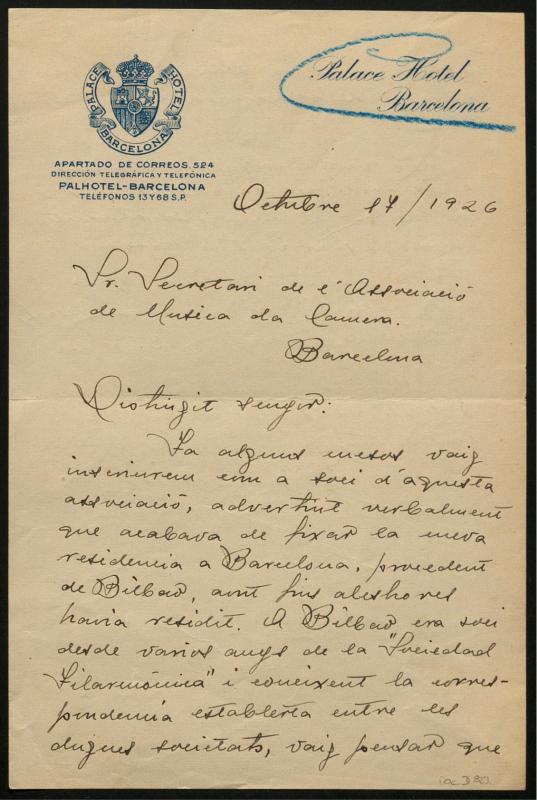 PALACE HOTEL
BARCELONA
APARTADO DE CORREOS. 524
DIRECCIÓN TELEGRÁFICA Y TELEFÓNICA
PALHOTEL-BARCELONA
TELÉFONOS 13 Y 68 S.P.
Palace Hotel
Barcelona
Octubre 17/1926
Sr. Secretari de l'Associació
de Musica da Camera.
Barcelona
Distingit senyor:
Fa alguns mesos vaig
inscriurem com a soci d'aquesta
associació, advertint verbalment
que acabava de fixar la meva
residencia a Barcelona, procedent
de Bilbao, ont fins aleshores
havia residit. A Bilbao era soci
desde varios anys de la "Sociedad
Filarmónica" i coneixent la corres-
pondencia establerta entre les
dugues societats, vaig pensar que